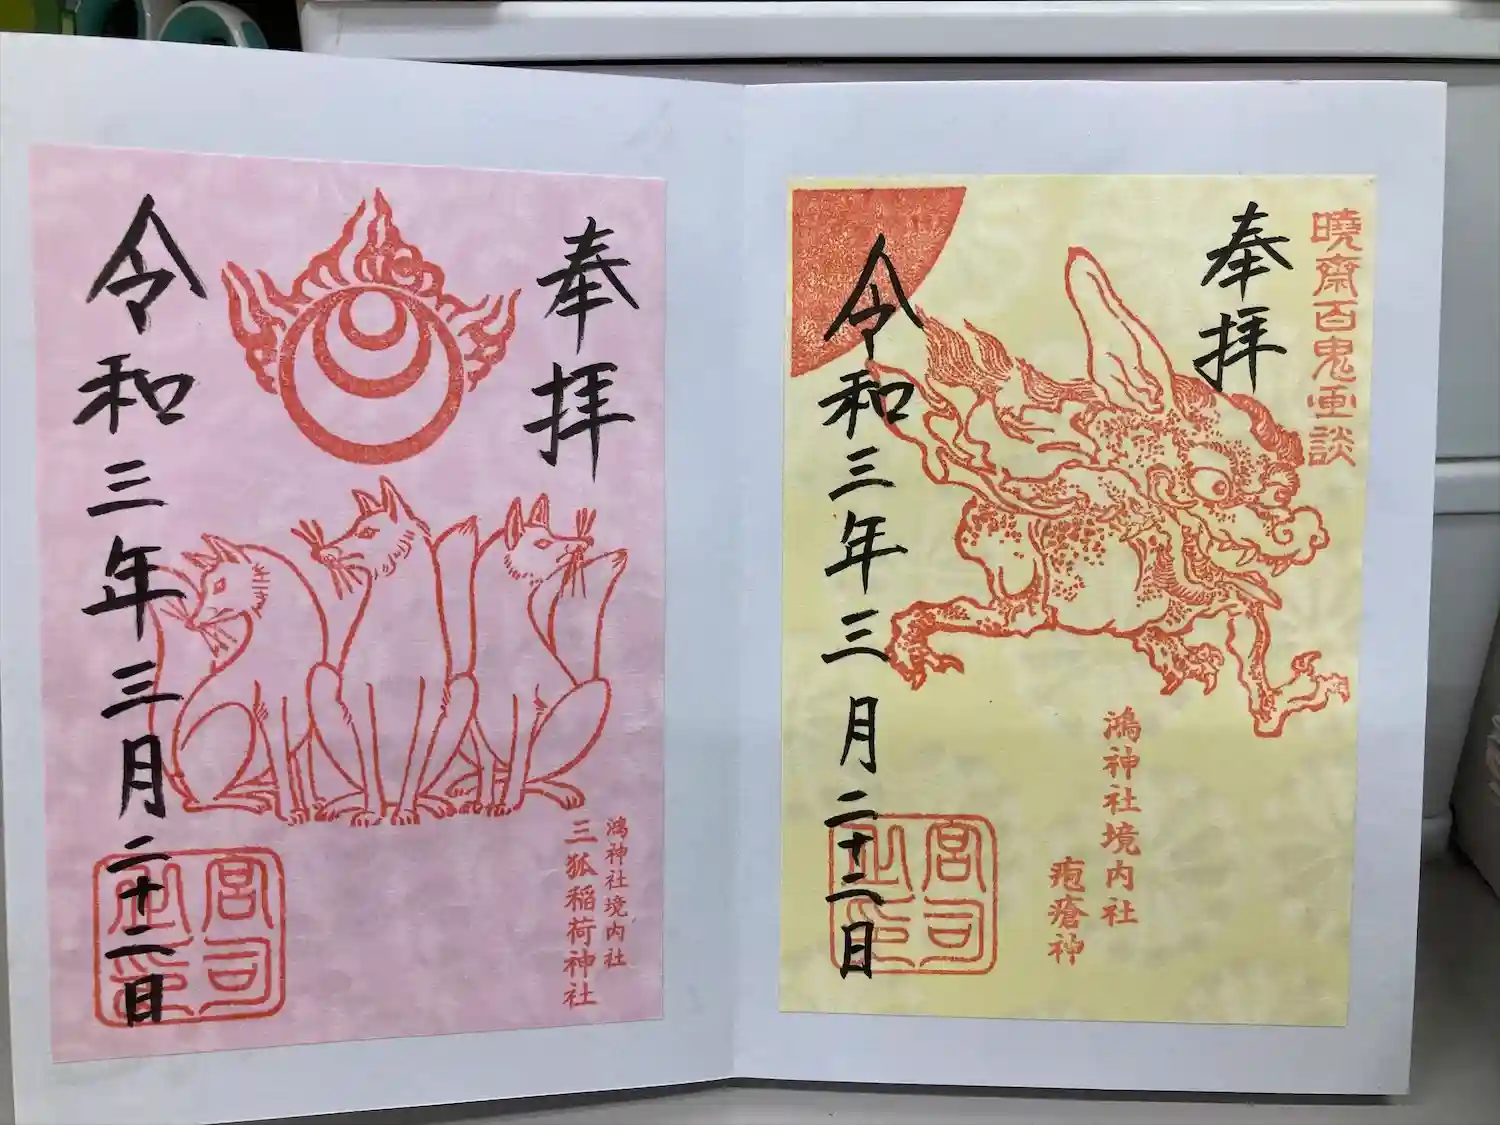 奉拝
令和三年三月二十二日
鴻神社境内社
三狐稲荷神社
宮司之印
暁斎百鬼画談
奉拝
鴻神社境内社
疱瘡神
令和三年三月二十二日
宮司之印